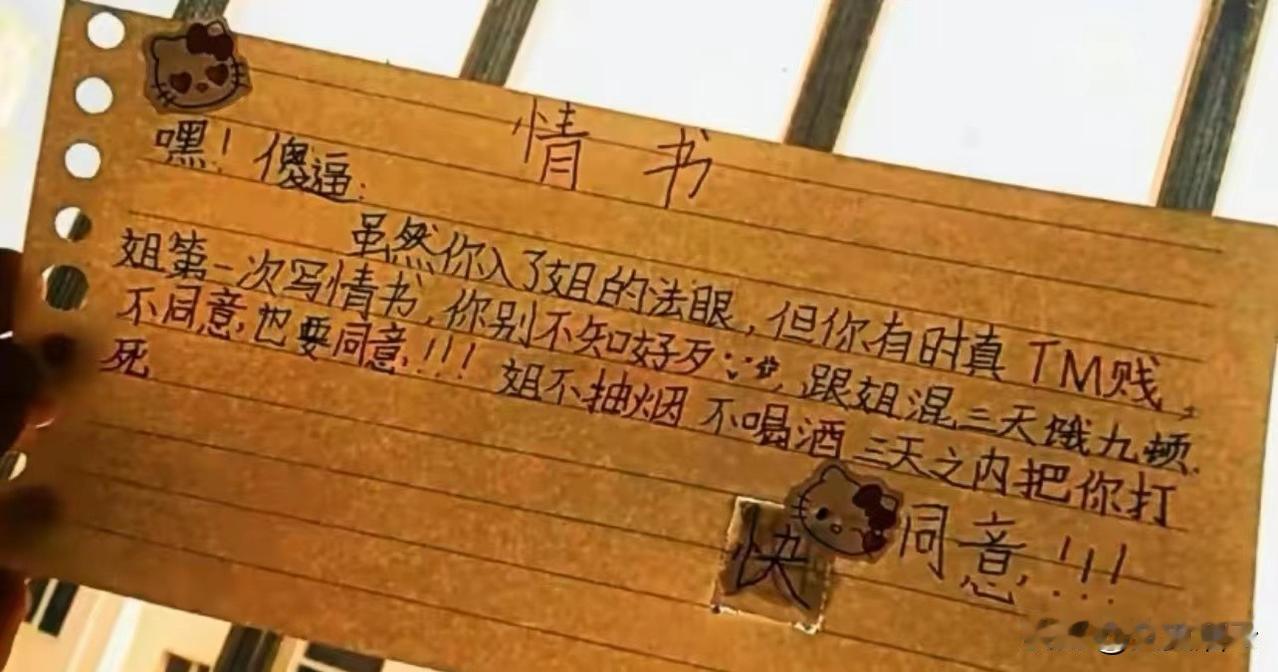 情书
嘿！傻逼：
虽然你入了姐的法眼，但你有时真TM贱，
姐第一次写情书，你别不知好歹，跟姐混三天饿九顿.
不同意也要同意!!! 姐不抽烟 不喝酒 三天之内把你打
死
快同意!!!